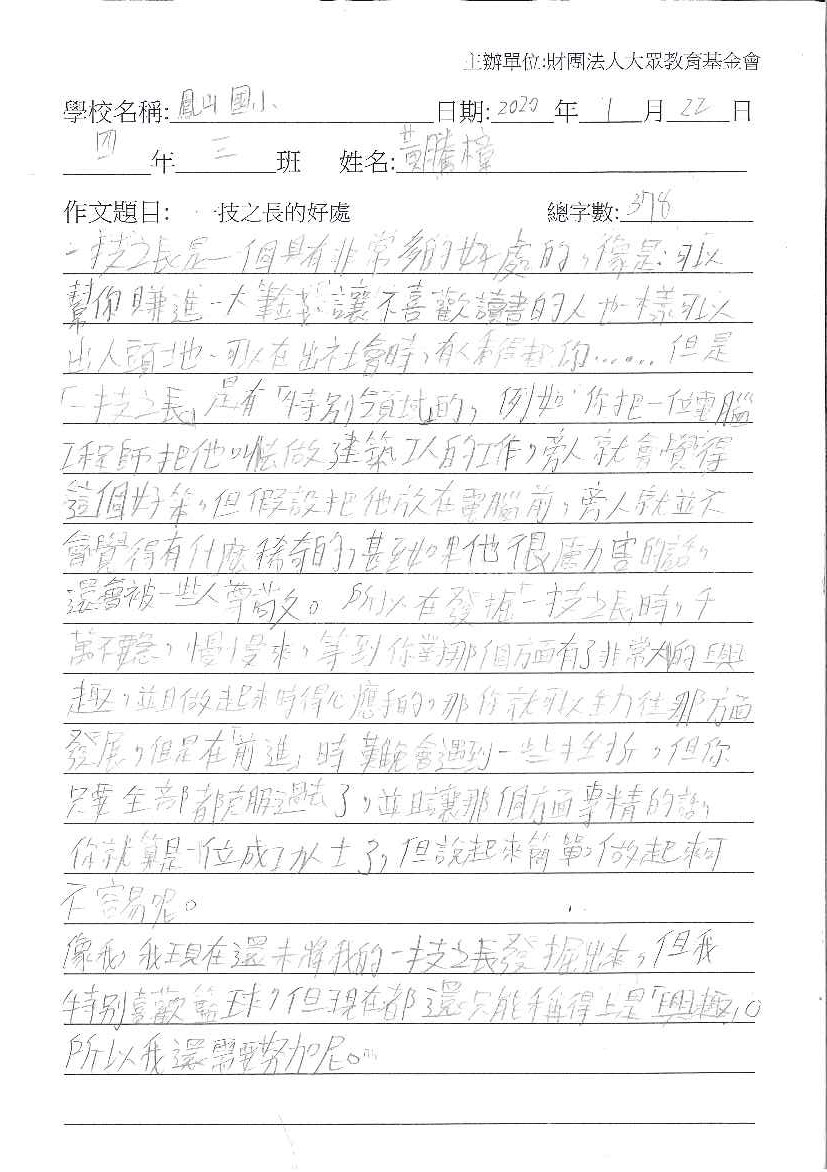 主辦單位:財團法人大眾教育基金會
學校名稱: 鳳山國小 日期: 2020 年 1 月 22 日
四 年 三 班 姓名: 黃騰樟
作文題目: 一技之長的好處 總字數: 378
一技之長是一個具有非常多的好處的,像是:可以
幫你賺進一大筆錢、讓不喜歡讀書的人也一樣可以
出人頭地、可以在出社會時,有人看得起你……但是
「一技之長」是有「特別領域」的,例如:你把一位電腦
工程師把他叫去做建築工人的工作,旁人就會覺得
這個好笨,但假設把他放在電腦前,旁人就並不
會覺得有什麼稀奇的,甚至如果他很厲力害的話,
還會被一些人尊敬。所以在發掘「一技之長」時,千
萬不要急,慢慢來,等到你對那個方面有了非常大的興
趣,並且做起來時得心應手的,那你就可以全力往那方面
發展,但是在「前進」時難免會遇到一些挫折,但你
只要全部都克服過去了,並且讓那個方面專精的話,
你就算是一位成功人士了,但說起來簡單,做起來可
不容易呢。
像我,我現在還未將我的一技之長發掘出來,但我
特別喜歡籃球,但現在都還只能稱得上是「興趣」。
所以我還需要努加呢。